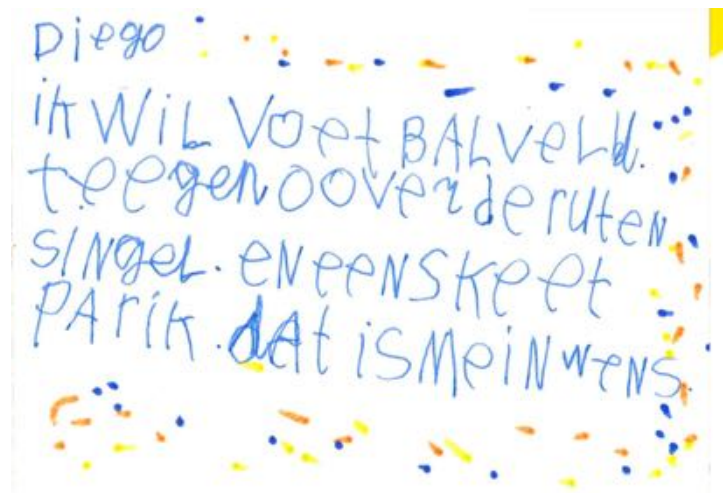 Diego
ik WiL Voet BALVeLd.
teegen OOVer de ruten
SiNgeL. eN eeN SKeet
PArik. dAt iS MeiN weNS.